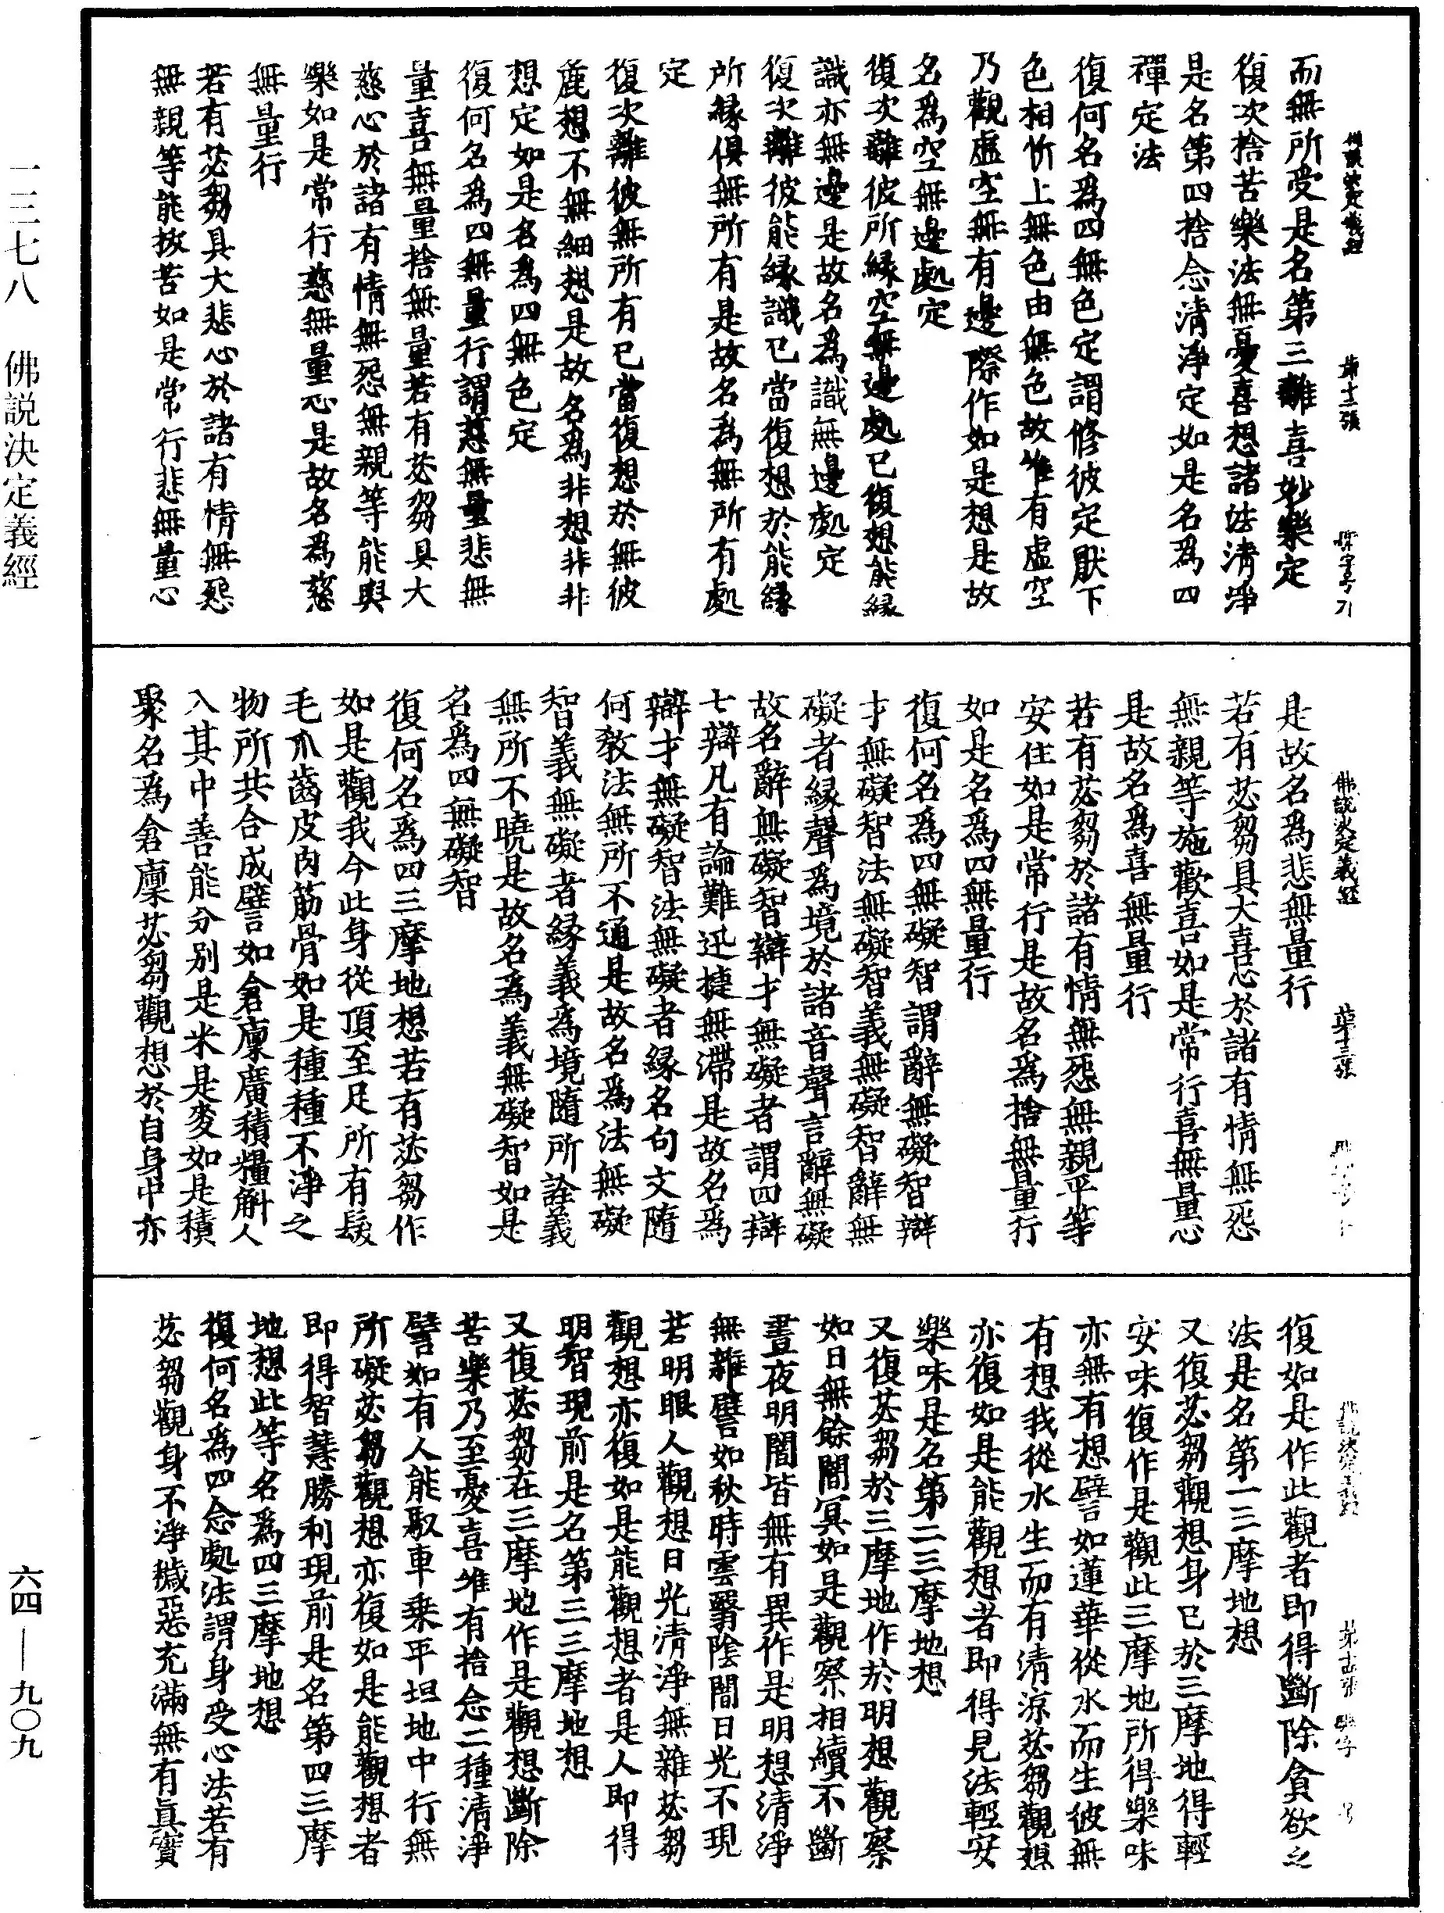 而無所受是名第三離喜妙樂定
復次捨苦樂法無憂喜想諸法清淨
是名第四捨念清淨定如是名為四
禪定法
復何名為四無色定謂修彼定厭下
色相忻上無色由無色故唯有虛空
乃觀虛空無有邊際作如是想是故
名為空無邊處定
復次離彼所緣空無邊處已復想能緣
識亦無邊是故名為識無邊處定
復次離彼能緣識已當復想於能緣
所緣俱無所有是故名為無所有處
定
復次離彼無所有已當復想於無彼
麁想不無細想是故名為非想非非
想定如是名為四無色定
復何名為四無量行謂慈無量悲無
量喜無量捨無量若有苾芻具大
慈心於諸有情無怨無親等能與
樂如是常行慈無量心是故名為慈
無量行
若有苾芻具大悲心於諸有情無怨
無親等能拔苦如是常行悲無量心
佛說決定義經 第十二張
是故名為悲無量行
若有苾芻具大喜心於諸有情無怨
無親等施歡喜如是常行喜無量心
是故名為喜無量行
若有苾芻於諸有情無怨無親平等
安住如是常行是故名為捨無量行
如是名為四無量行
復何名為四無礙智謂辭無礙智辯
才無礙智法無礙智義無礙智辭無
礙者緣聲為境於諸音聲言辭無礙
故名辭無礙智辯才無礙者謂四辯
七辯凡有論難迅捷無滯是故名為
辯才無礙智法無礙者緣名句文隨
何教法無所不通是故名為法無礙
智義無礙者緣義為境隨所詮義
無所不曉是故名為義無礙智如是
名為四無礙智
復何名為四三摩地想若有苾芻作
如是觀我今此身從頂至足所有髮
毛爪齒皮肉筋骨如是種種不淨之
物所共合成譬如倉廩廣積糧斛人
入其中善能分別是米是麥如是積
聚名為倉廩苾芻觀想於自身中亦
佛說決定義經 第十三張
復如是作此觀者即得斷除貪欲之
法是名第一三摩地想
又復苾芻觀想身已於三摩地得輕
安味復作是觀此三摩地所得樂味
亦無有想譬如蓮華從水而生彼無
有想我從水生而有清涼苾芻觀想
亦復如是能觀想者即得見法輕安
樂味是名第二三摩地想
又復苾芻於三摩地作於明想觀察
如日無餘闇冥如是觀察相續不斷
晝夜明闇皆無有異作是明想清淨
無雜譬如秋時雲翳陰闇日光不現
若明眼人觀想日光清淨無雜苾芻
觀想亦復如是能觀想者是人即得
明智現前是名第三三摩地想
又復苾芻在三摩地作是觀想斷除
苦樂乃至憂喜唯有捨念二種清淨
譬如有人能馭車乘平坦地中行無
所礙苾芻觀想亦復如是能觀想者
即得智慧勝利現前是名第四三摩
地想此等名為四三摩地想
復何名為四念處法謂身受心法若有
苾芻觀身不淨穢惡充滿無有真實
佛說決定義經
一三七八 佛説決定義經
六四—九〇九